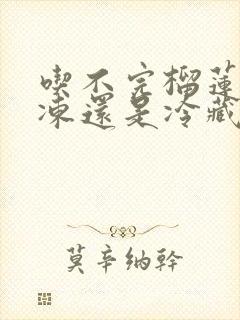 喫不完榴蓮
凍還是冷藏
莫辛納幹